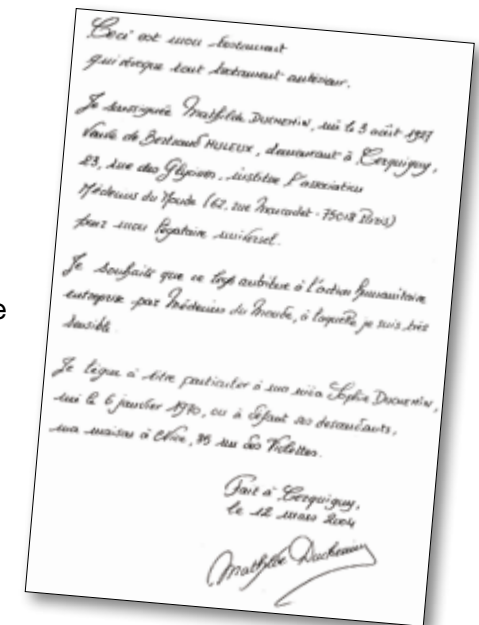 Ceci est mon testament
qui révoque tout testament antérieur.
Je soussignée Mathilde DUCHEMIN, née le 3 août 1927
Veuve de Bertrand HULEUX, demeurant à Cerquigny,
23, rue des Glycines, institue l'association
Médecins du Monde (62, rue Marcadet - 75018 Paris)
pour mon légataire universel.
Je souhaite que ce legs contribue à l'action humanitaire
entreprise par Médecins du Monde, à laquelle je suis très
sensible.
Je lègue à titre particulier à ma nièce Sophie DUCHEMIN,
née le 6 janvier 1970, ou à défaut ses descendants,
ma maison à Nice, 35 rue des Violettes.
Fait à Cerquigny,
le 12 mars 2004
Mathilde Duchemin
e